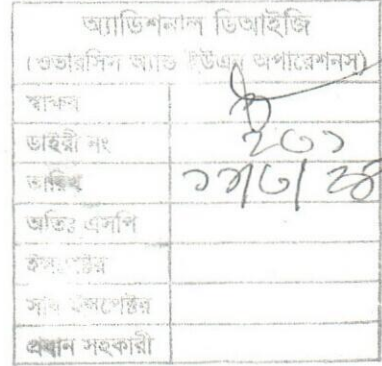 অ্যাডিশনাল ডিআইজি
(ওভারসিস অ্যান্ড ইউএন অপারেশনস)
স্বাক্ষর
ডাইরী নং ২৩১
তারিখ
অতিঃ এসপি
ইন্সপেক্টর
সাব ইন্সপেক্টর
প্রধান সহকারী